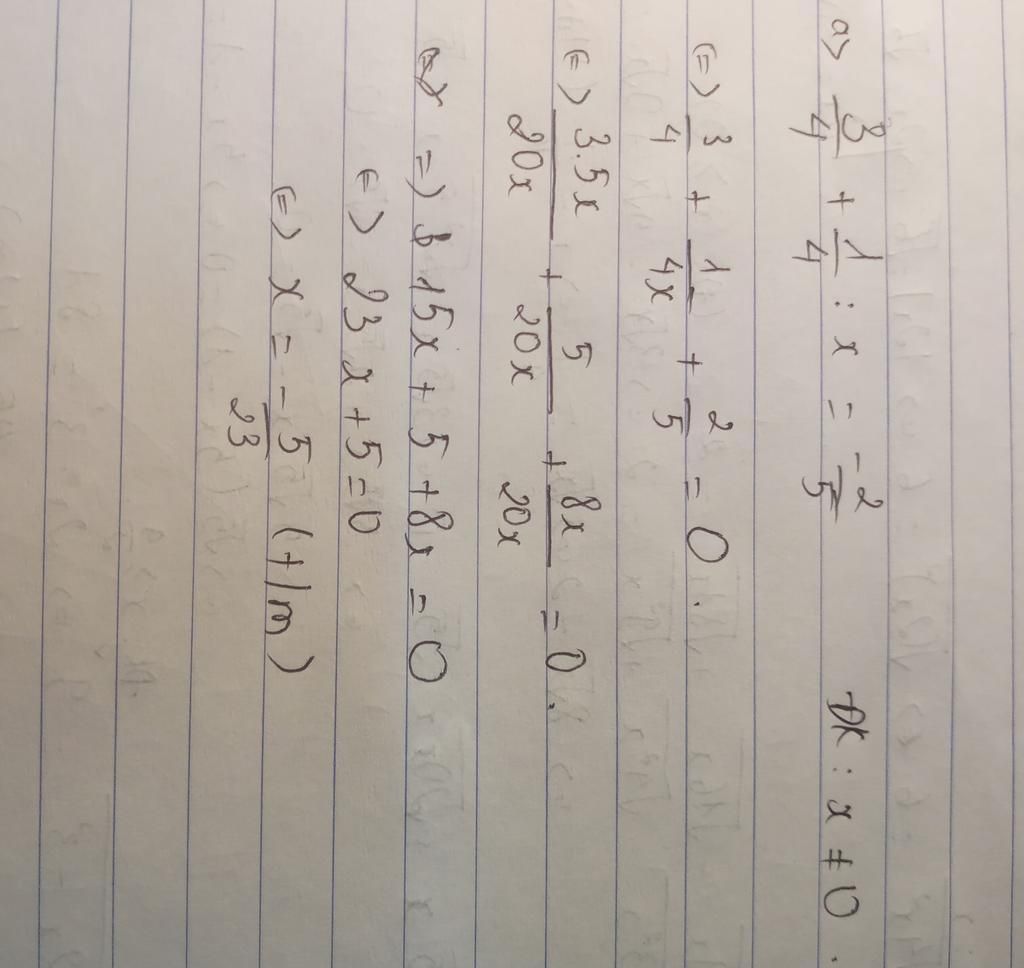 a) 3/4 + 1/4 : x = -2/5 ĐK : x ≠ 0.
(=) 3/4 + 1/4x + 2/5 = 0.
(=) 3.5x/20x + 5/20x + 8x/20x = 0.
=) 15x + 5 + 8x = 0
(=) 23x + 5 = 0
(=) x = -5/23 (t/m)